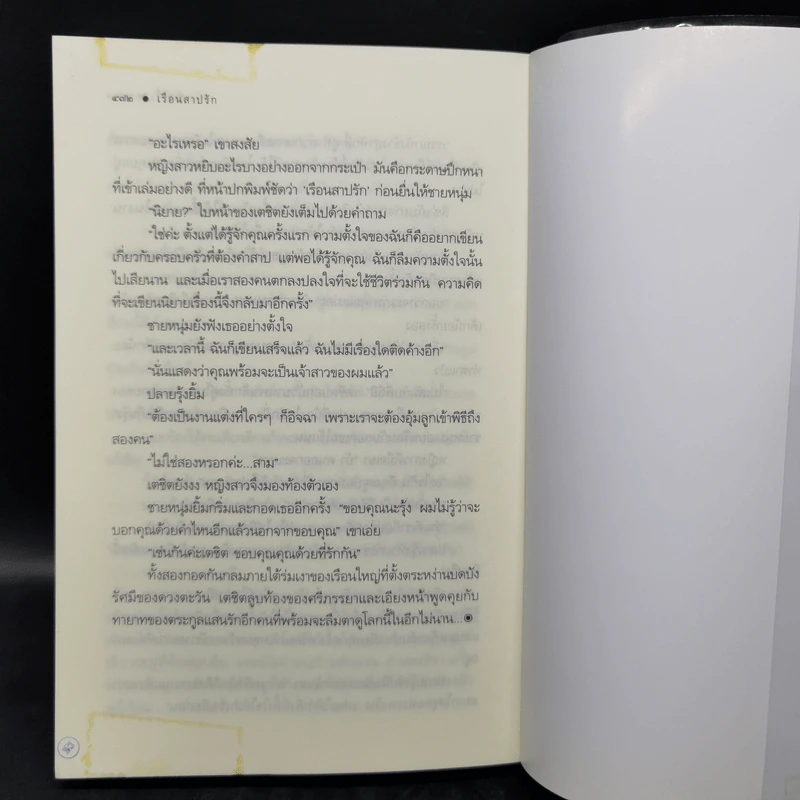 ๔๗๒ ● เรือนสาปรัก
“อะไรเหรอ” เขาสงสัย
หญิงสาวหยิบอะไรบางอย่างออกจากกระเป๋า มันคือกระดาษปึกหนา
ที่เข้าเล่มอย่างดี ที่หน้าปกพิมพ์ชัดว่า ‘เรือนสาปรัก’ ก่อนยื่นให้ชายหนุ่ม
“นิยาย?” ใบหน้าของเตชิตยังเต็มไปด้วยคำถาม
“ใช่ค่ะ ตั้งแต่ได้รู้จักคุณครั้งแรก ความตั้งใจของฉันก็คืออยากเขียน
เกี่ยวกับครอบครัวที่ต้องคำสาป แต่พอได้รู้จักคุณ ฉันก็ลืมความตั้งใจนั้น
ไปเสียนาน และเมื่อเราสองคนตกลงปลงใจที่จะใช้ชีวิตร่วมกัน ความคิด
ที่จะเขียนนิยายเรื่องนี้จึงกลับมาอีกครั้ง”
ชายหนุ่มยังฟังเธออย่างตั้งใจ
“และเวลานี้ ฉันก็เขียนเสร็จแล้ว ฉันไม่มีเรื่องใดติดค้างอีก”
“นั่นแสดงว่าคุณพร้อมจะเป็นเจ้าสาวของผมแล้ว”
ปลายรุ้งยิ้ม
“ต้องเป็นงานแต่งที่ใครๆ ก็อิจฉา เพราะเราจะต้องอุ้มลูกเข้าพิธีถึง
สองคน”
“ไม่ใช่สองหรอกค่ะ...สาม”
เตชิตยังงง หญิงสาวจึงมองท้องตัวเอง
ชายหนุ่มยิ้มกริ่มและกอดเธออีกครั้ง “ขอบคุณนะรุ้ง ผมไม่รู้ว่าจะ
บอกคุณด้วยคำไหนอีกแล้วนอกจากขอบคุณ” เขาเอ่ย
“เช่นกันค่ะเตชิต ขอบคุณคุณด้วยที่รักกัน”
ทั้งสองกอดกันกลมภายใต้ร่มเงาของเรือนใหญ่ที่ตั้งตระหง่านบดบัง
รัศมีของดวงตะวัน เตชิตลูบท้องของศรีภรรยาและเอียงหน้าพูดคุยกับ
ทายาทของตระกูลแสนรักอีกคนที่พร้อมจะลืมตาดูโลกนี้ในอีกไม่นาน...